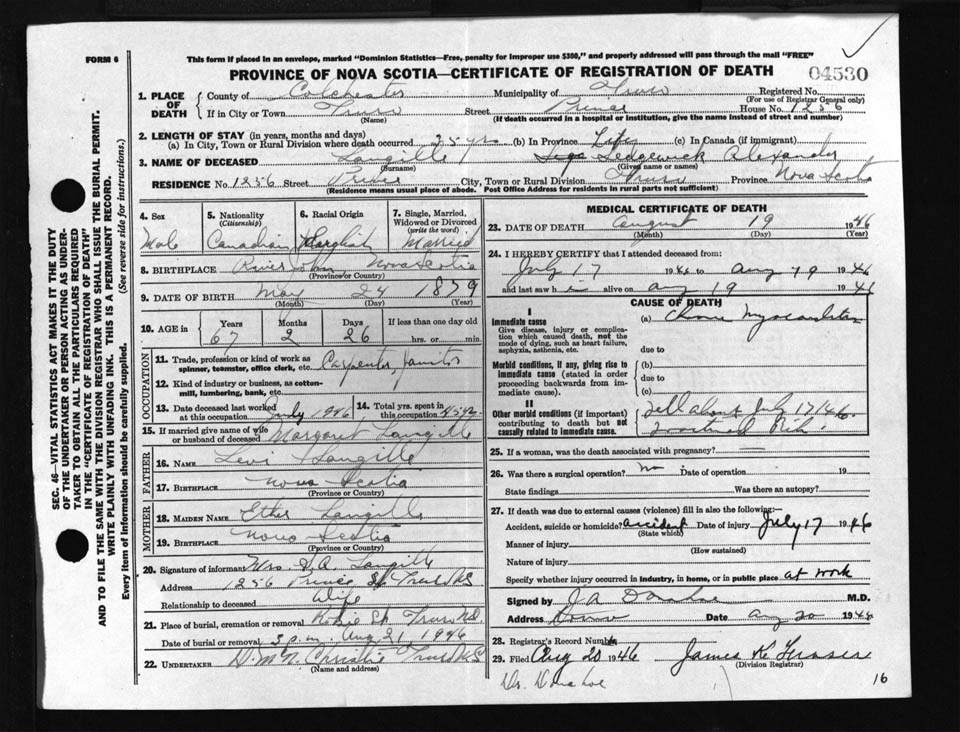 FORM 6
This form if placed in an envelope, marked "Dominion Statistics—Free, penalty for improper use $300," and properly addressed will pass through the mail "FREE"
PROVINCE OF NOVA SCOTIA—CERTIFICATE OF REGISTRATION OF DEATH"
04530
1. PLACE OF DEATH County of Colchester Municipality of Truro Registered No.
(For use of Registrar General only)
If in City or Town Truro Street Prince House No. 1256
(Name) (If death occurred in a hospital or institution, give the name instead of street and number)
2. LENGTH OF STAY (in years, months and days)
(a) In City, Town or Rural Division where death occurred 35 yrs (b) In Province Life (c) In Canada (if immigrant)
3. NAME OF DECEASED Langille Sedgewick Alexander
(Surname) (Given name or names)
RESIDENCE No. 1256 Street Prince City, Town or Rural Division Truro Province Nova Scotia
(Residence means usual place of abode. Post Office Address for residents in rural parts not sufficient)
SEC. 46—VITAL STATISTICS ACT MAKES IT THE DUTY
OF THE UNDERTAKER OR PERSON ACTING AS UNDER-
TAKER TO OBTAIN ALL THE PARTICULARS REQUIRED
IN THE "CERTIFICATE OF REGISTRATION OF DEATH"
AND TO FILE THE SAME WITH THE DIVISION REGISTRAR WHO SHALL ISSUE THE BURIAL PERMIT.
WRITE PLAINLY WITH UNFADING INK. THIS IS A PERMANENT RECORD.
Every item of information should be carefully supplied. (See reverse side for instructions.)
4. Sex 5. Nationality (Citizenship) 6. Racial Origin 7. Single, Married, Widowed or Divorced (write the word)
Male Canadian English Married
8. BIRTHPLACE River John Nova Scotia
(Province or Country)
9. DATE OF BIRTH May 24 1879
(Month) (Day) (Year)
10. AGE in Years Months Days If less than one day old
67 2 26 hrs. or min.
OCCUPATION
11. Trade, profession or kind of work as spinner, teamster, office clerk, etc. Carpenter, Janitor
12. Kind of industry or business, as cotton-mill, lumbering, bank, etc.
13. Date deceased last worked at this occupation July 1946 14. Total yrs. spent in this occupation 45 yrs.
15. If married give name of wife or husband of deceased Margaret Langille
FATHER
16. NAME Levi Langille
17. BIRTHPLACE Nova Scotia
(Province or Country)
MOTHER
18. MAIDEN NAME Ether Langille
19. BIRTHPLACE Nova Scotia
(Province or Country)
20. Signature of informant Mrs. S. A. Langille
Address 1256 Prince St Truro NS
Relationship to deceased Wife
21. Place of burial, cremation or removal Robie St. Truro N.S.
Date of burial or removal 3 p.m. Aug 21, 1946
22. UNDERTAKER Christie Truro N.S
(Name and address)
MEDICAL CERTIFICATE OF DEATH
23. DATE OF DEATH August 19 1946
(Month) (Day) (Year)
24. I HEREBY CERTIFY that I attended deceased from:
July 17 1946 to Aug 19 1946
and last saw h i alive on Aug 19 1946
CAUSE OF DEATH
I
Immediate cause
Give disease, injury or complication which caused death, not the mode of dying, such as heart failure, asphyxia, asthenia, etc.
(a) Chronic Myocarditis
due to
Morbid conditions, if any, giving rise to immediate cause (stated in order proceeding backwards from immediate cause).
(b)
due to
(c)
II
Other morbid conditions (if important) contributing to death but not causally related to immediate cause.
fell about July 17/46
fractured Rib.
25. If a woman, was the death associated with pregnancy? —
26. Was there a surgical operation? no Date of operation 19
State findings Was there an autopsy?
27. If death was due to external causes (violence) fill in also the following:—
Accident, suicide or homicide? accident Date of injury July 17 1946
(State which)
Manner of injury
(How sustained)
Nature of injury
Specify whether injury occurred in industry, in home, or in public place at work
Signed by J.A. Donahoe M.D.
Address Date Aug 20 1946
28. Registrar's Record Number
29. Filed Aug 20 1946 James K Fraser
(Division Registrar)
Dr. Donahoe
16